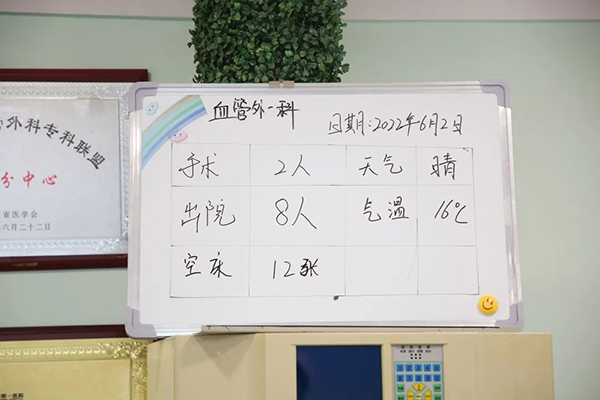 血管外一科
日期:2022年6月2日
手术 2人 天气 晴
出院 8人 气温 16℃
空床 12张
外科专科联盟
分中心
省医学会
六月二十二日
第一医院